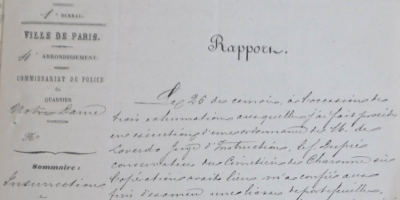 1er BUREAU.
VILLE DE PARIS.
4e ARRONDISSEMENT.
COMMISSARIAT DE POLICE
du
QUARTIER
Notre Dame
No
Sommaire:
Insurrection
Rapport.
Le 26 de ce mois, à l'occasion des
trois exhumations auxquelles j'ai fait procéder
en exécution d'une ordonnance du 16. de
Loverdo Juge d'Instruction, le sr Dupré
conservateur des Cimetières de Charonne
opérations m'a confié aux
fins d'examen une liasse de portefeuilles